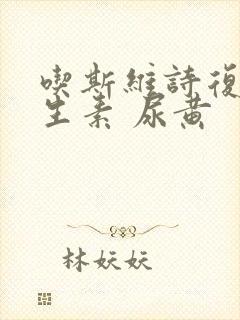 喫斯維詩復
生素 尿黄
林妖妖